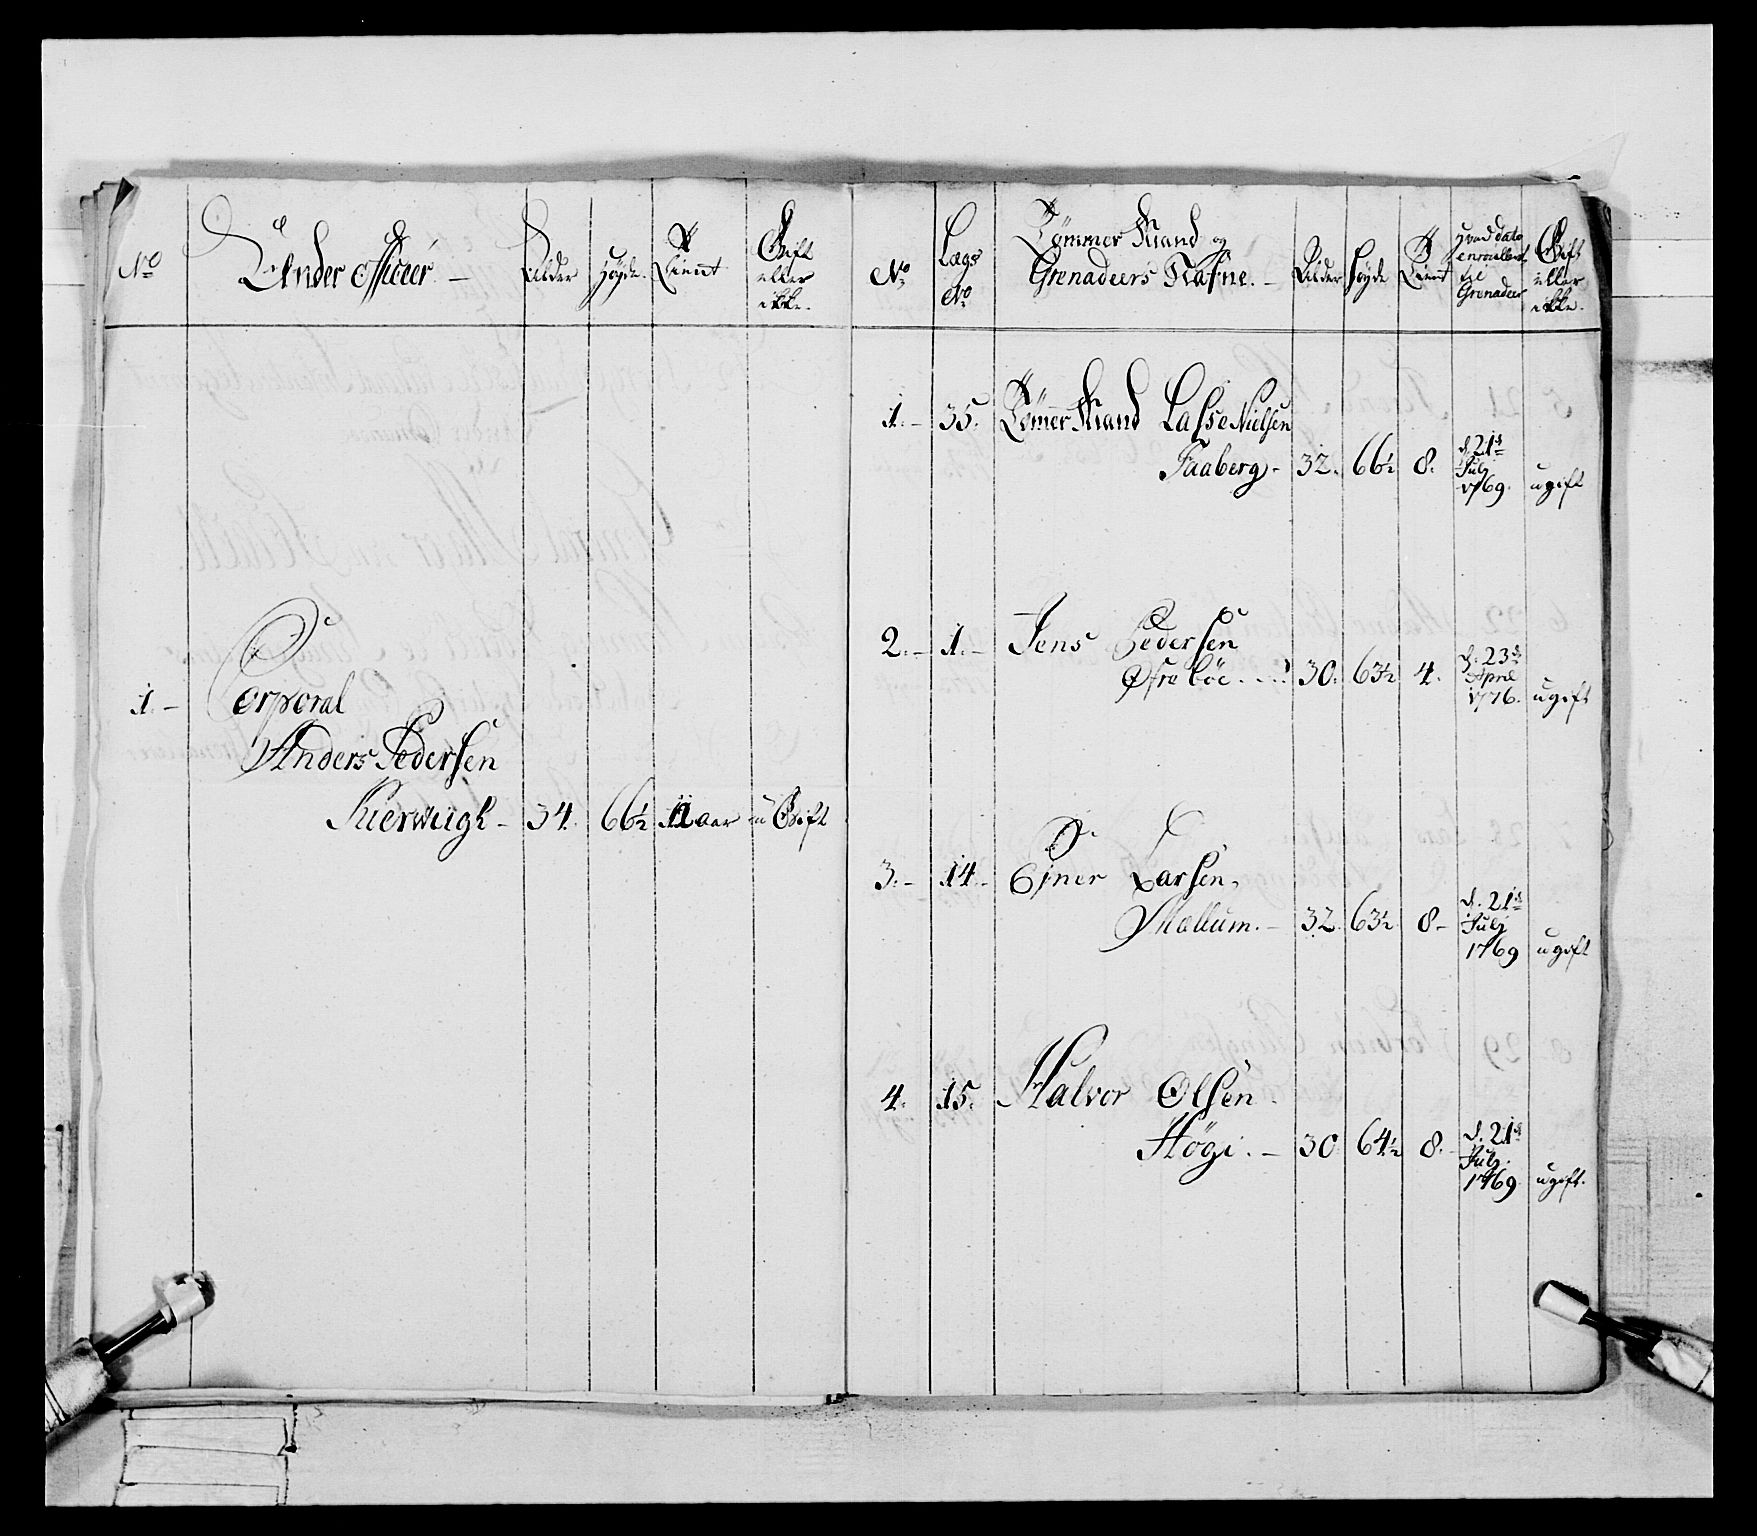 No
Under Officeer. —
Alder
Høyde.
Tient
Gift
eller
ikke.
1. —
Corporal
Anders Pedersen
34.
66½
11 aar
u Gift
No
Lægs
No
Tømmer Mand og
Grenadeers Nafne. —
Alder
Høyde
Tient
Hvad dato
enroullert
til
Grenadeer
Gift
eller
ikke.
1. — 35. Tømer Mand Lasse Nielsen
Faaberg — 32. 66½ 8. d. 21de
Julj
1769. ugift
2. — 1. — Jens Pedersen
30. 63½ 4. d. 23de
April
1776. ugift
3. — 14. — Ejner Larsen,
Mællum. — 32. 63½ 8 — d. 21de
Julj
1769 ugift
4. 15. Halvor Olsen
Høgi. — 30 64½ 8. d. 21de
Julj.
1769. ugift.